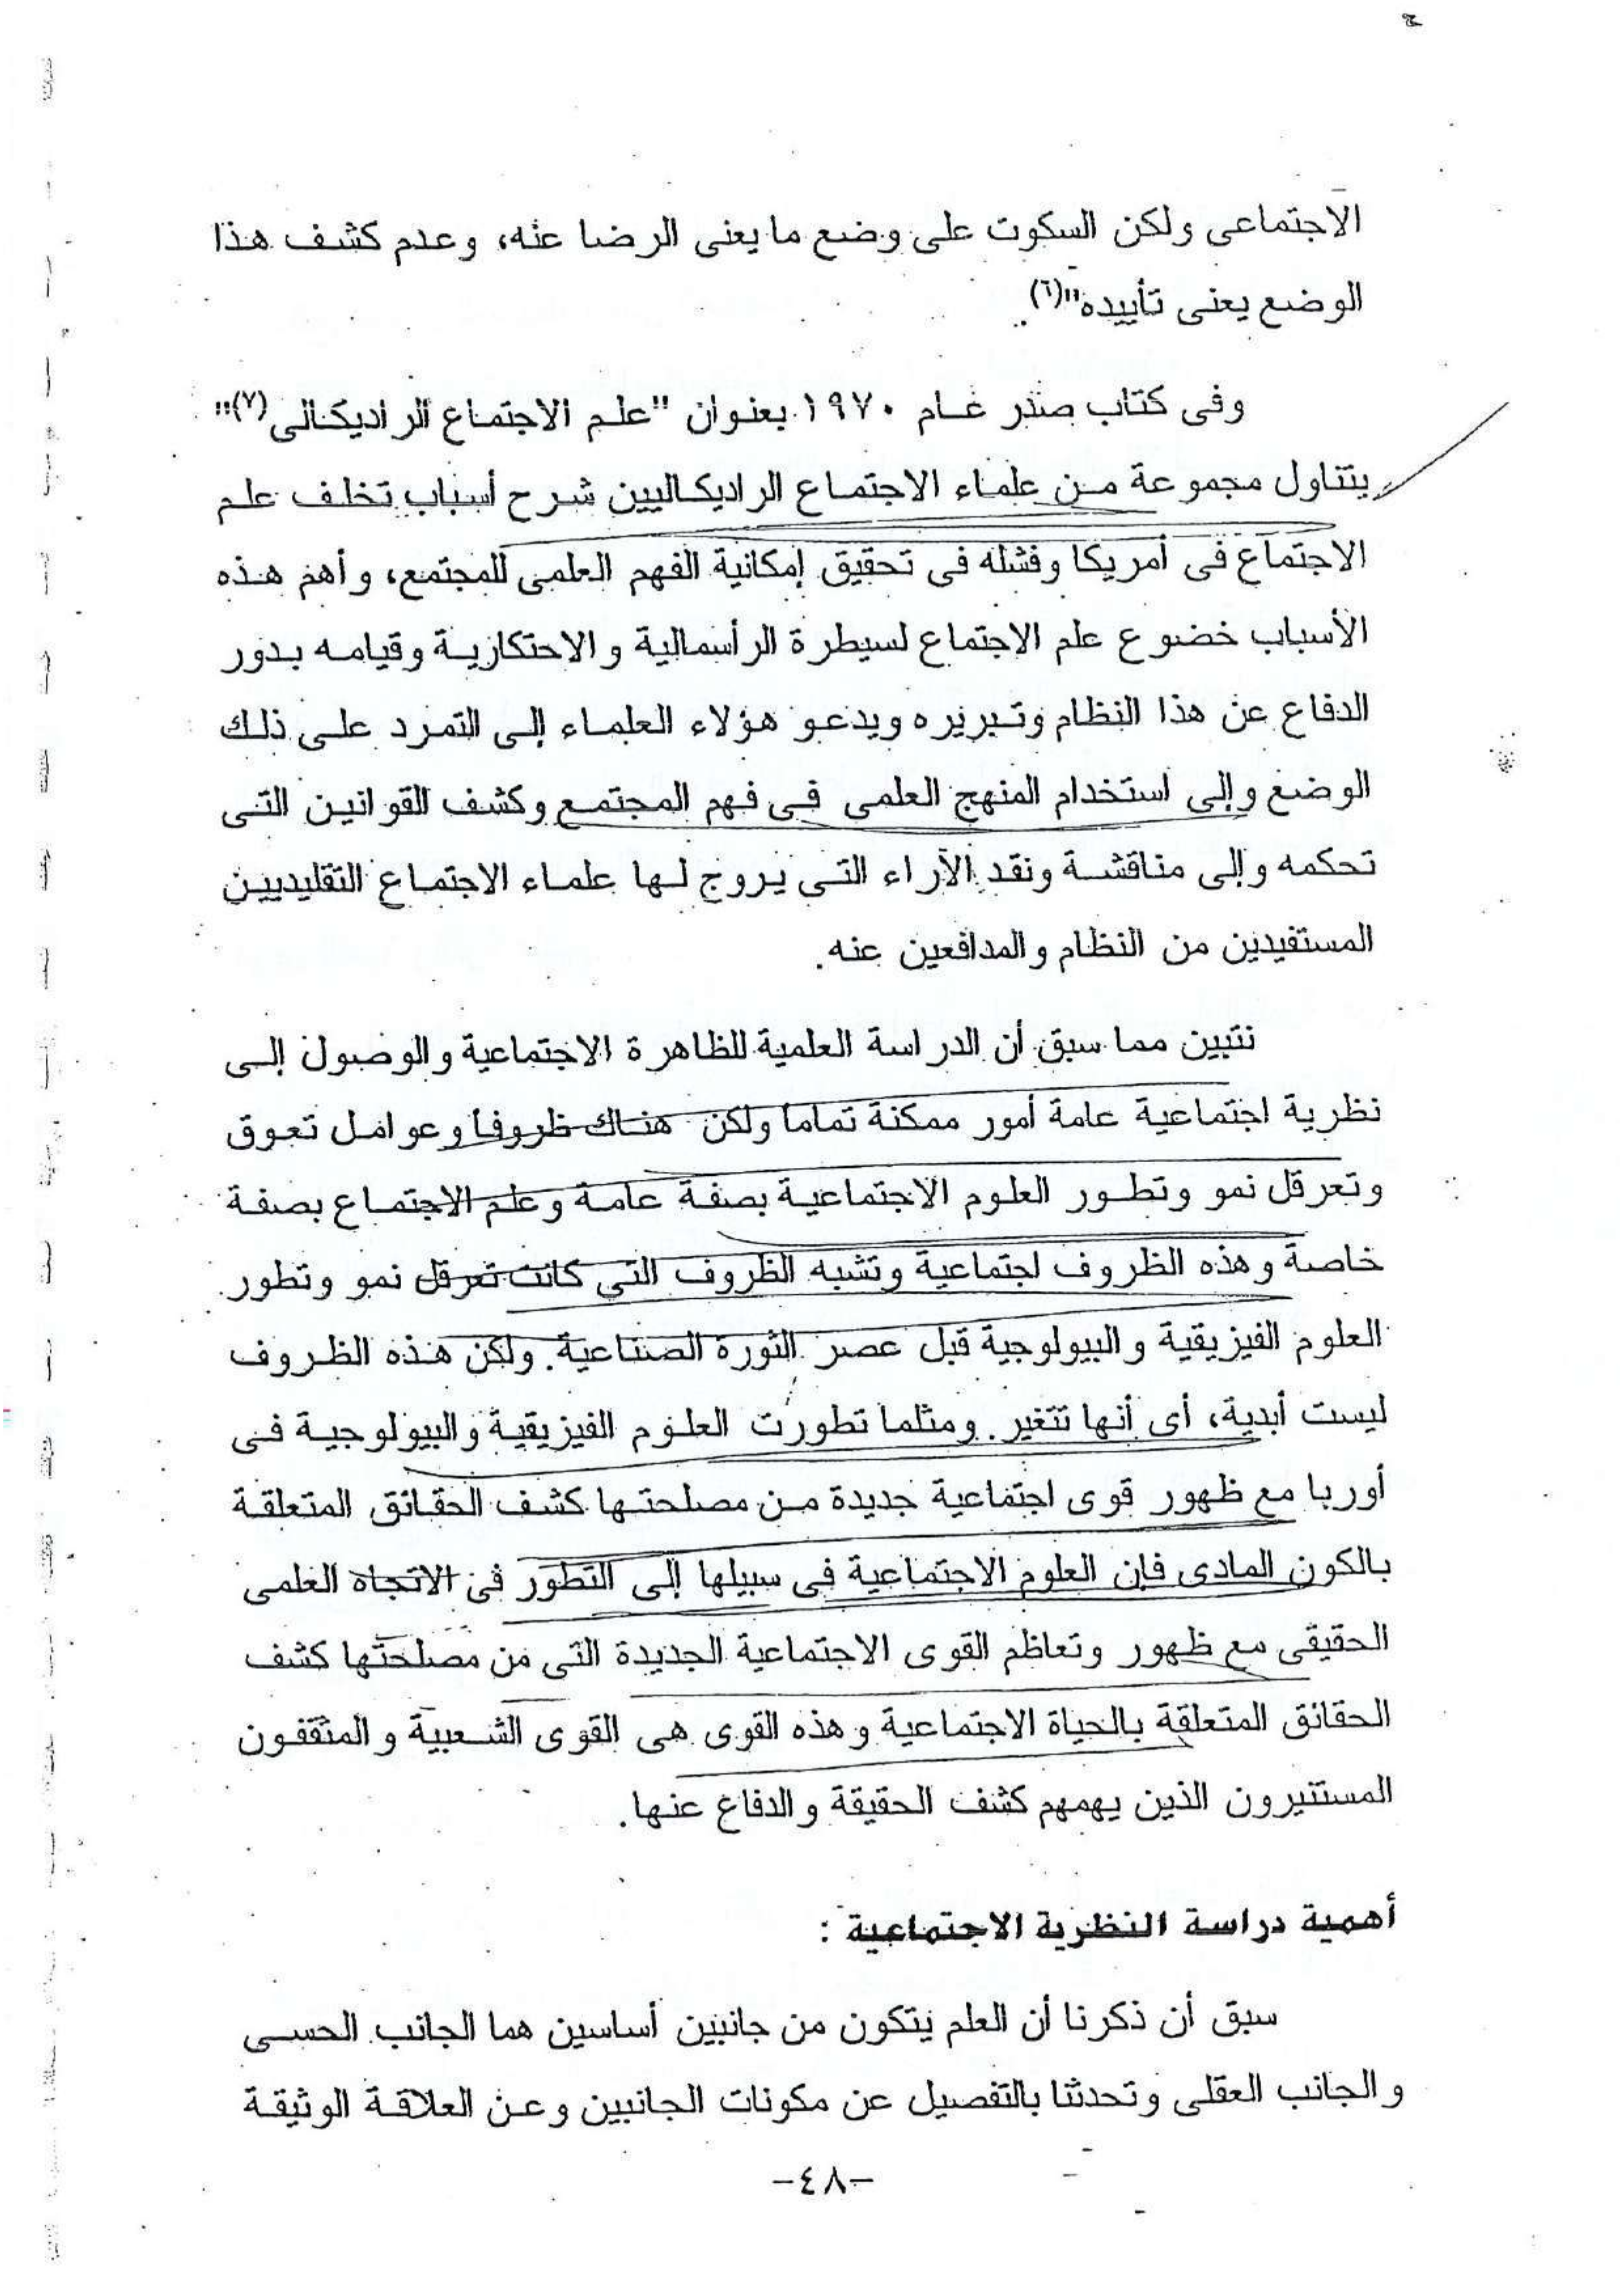 الاجتماعى ولكن السكوت على وضع ما يعنى الرضا عنه، وعدم كشف هذا
الوضع يعنى تأييده"(٦).
وفى كتاب صدر عام ١٩٧٠ بعنوان "علم الاجتماع الراديكالى(٧)"
يتناول مجموعة من علماء الاجتماع الراديكاليين شرح أسباب تخلف علم
الاجتماع فى أمريكا وفشله فى تحقيق إمكانية الفهم العلمى للمجتمع، وأهم هذه
الأسباب خضوع علم الاجتماع لسيطرة الرأسمالية والاحتكارية وقيامه بدور
الدفاع عن هذا النظام وتبريره ويدعو هؤلاء العلماء إلى التمرد على ذلك
الوضع وإلى استخدام المنهج العلمى فى فهم المجتمع وكشف القوانين التى
تحكمه وإلى مناقشة ونقد الآراء التى يروج لها علماء الاجتماع التقليديين
المستفيدين من النظام والمدافعين عنه.
نتبين مما سبق أن الدراسة العلمية للظاهرة الاجتماعية والوصول إلى
نظرية اجتماعية عامة أمور ممكنة تماما ولكن هناك ظروفا وعوامل تعوق
وتعرقل نمو وتطور العلوم الاجتماعية بصفة عامة وعلم الاجتماع بصفة
خاصة وهذه الظروف اجتماعية وتشبه الظروف التى كانت تعرقل نمو وتطور
العلوم الفيزيقية والبيولوجية قبل عصر الثورة الصناعية. ولكن هذه الظروف
ليست أبدية، أى أنها تتغير. ومثلما تطورت العلوم الفيزيقية والبيولوجية فى
أوربا مع ظهور قوى اجتماعية جديدة من مصلحتها كشف الحقائق المتعلقة
بالكون المادى فإن العلوم الاجتماعية فى سبيلها إلى التطور فى الاتجاه العلمى
الحقيقى مع ظهور وتعاظم القوى الاجتماعية الجديدة التى من مصلحتها كشف
الحقائق المتعلقة بالحياة الاجتماعية وهذه القوى هى القوى الشعبية والمثقفون
المستنيرون الذين يهمهم كشف الحقيقة والدفاع عنها.
أهمية دراسة النظرية الاجتماعية :
سبق أن ذكرنا أن العلم يتكون من جانبين أساسين هما الجانب الحسى
والجانب العقلى وتحدثنا بالتفصيل عن مكونات الجانبين وعن العلاقة الوثيقة
-٤٨-